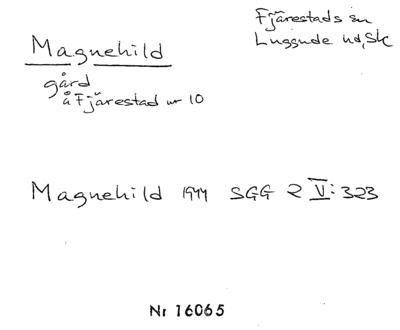 Fjärestads sn
Luggude hd, Sk
Magnehild
gård
å Fjärestad nr 10
Magnehild 1944 SGG 2 V: 323
Nr 16065